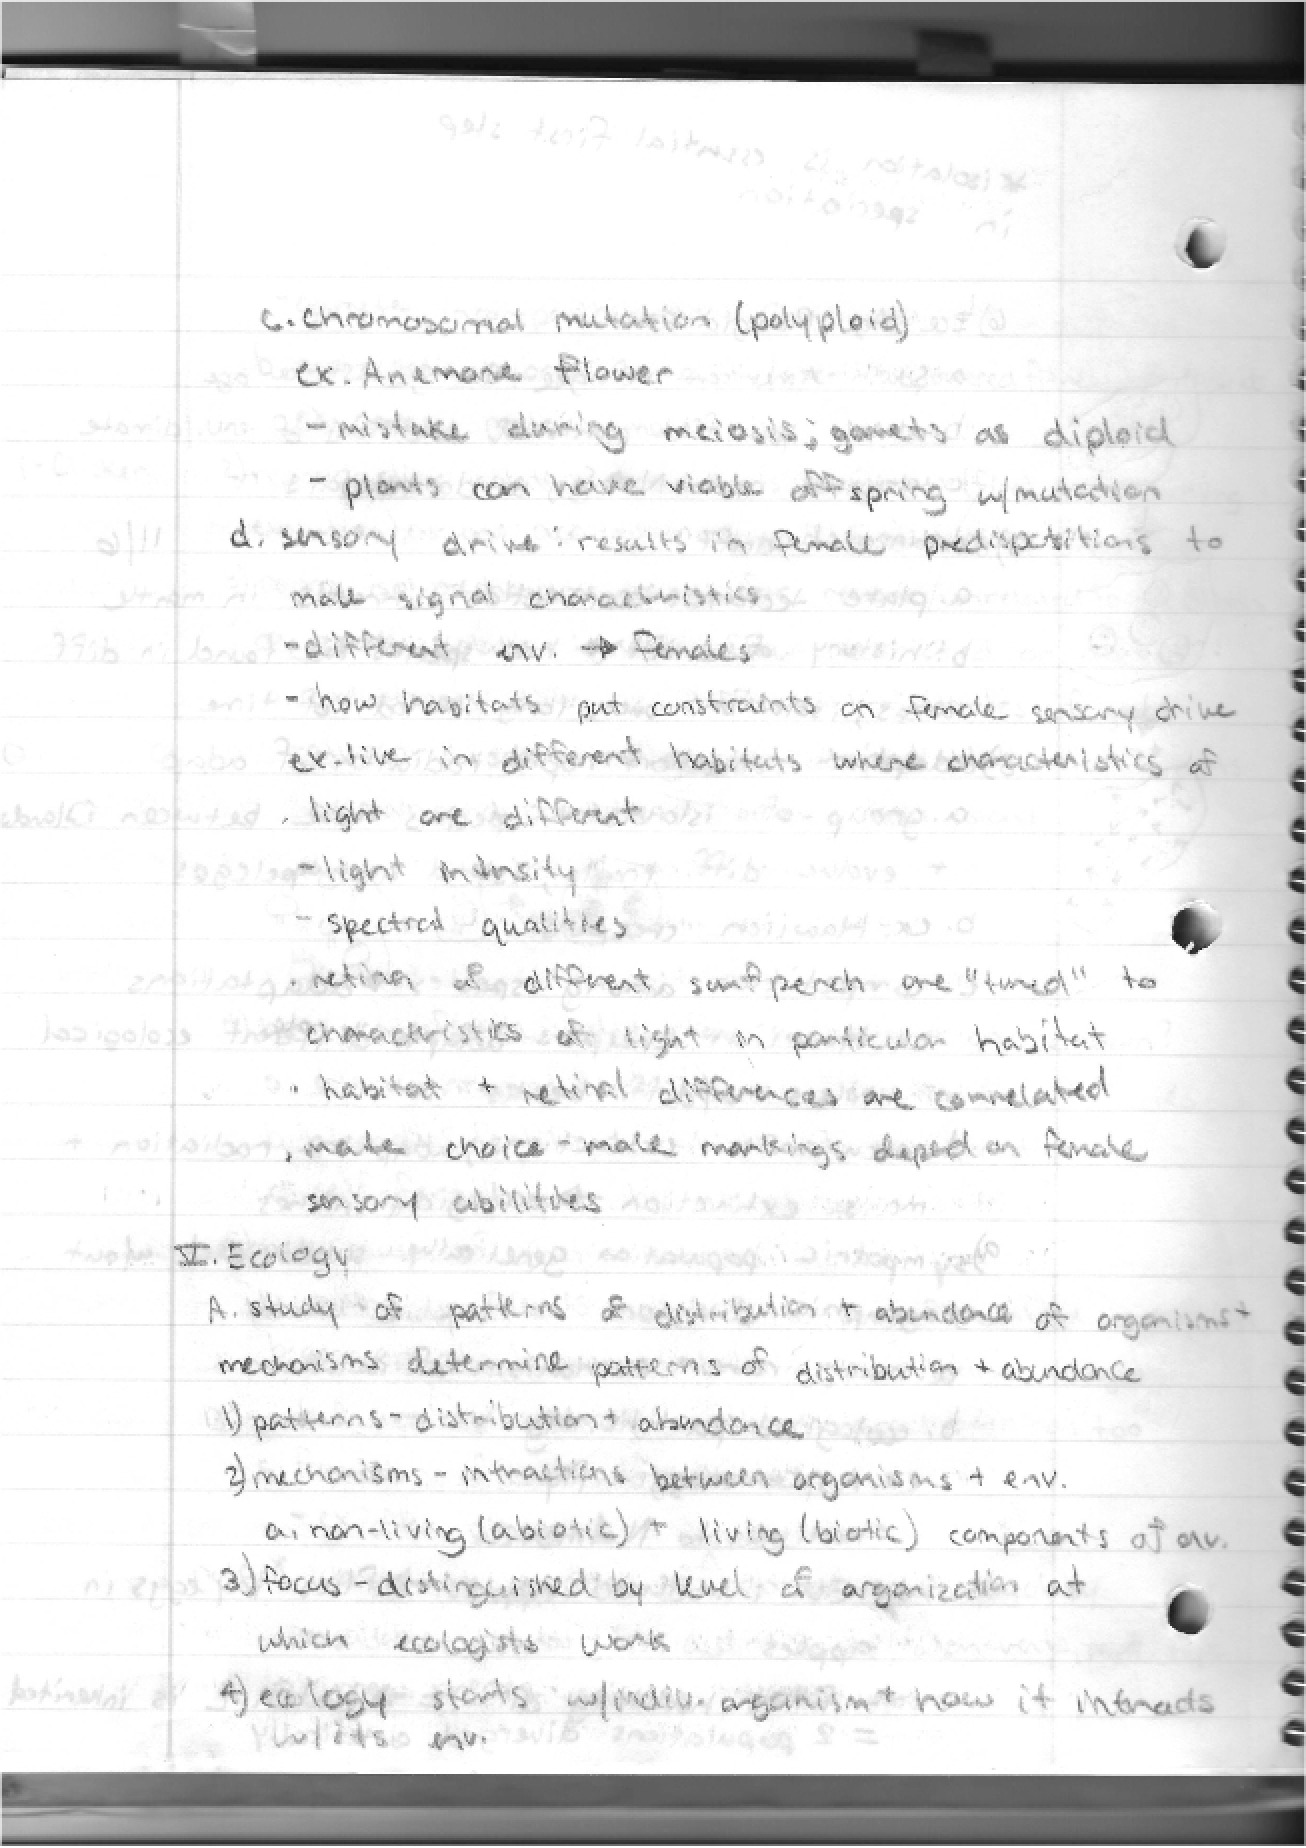 c. chromosomal mutation (polyploid)
ex. Anemone flower
- mistake during meiosis; gamets as diploid
- plants can have viable offspring w/mutation
d. sensory drive: results in female predispositions to
male signal characteristics
- different env. → females
- how habitats put constraints on female sensory drive
ex. live in different habitats where characteristics of
. light are different
- light intensity
- spectral qualities
. retina of different surfperch are "tuned" to
characteristics of light in particular habitat
. habitat + retinal differences are correlated
. mate choice - male markings depend on female
sensory abilities
V. Ecology
A. study of patterns of distribution + abundance of organisms +
mechanisms determine patterns of distribution + abundance
1) patterns - distribution + abundance
2) mechanisms - intractions between organisms + env.
a. non-living (abiotic) + living (biotic) components of env.
3) focus - distinguished by level of organization at
which ecologists work
4) ecology starts w/indiv. organism + how it interacts
w/its env.